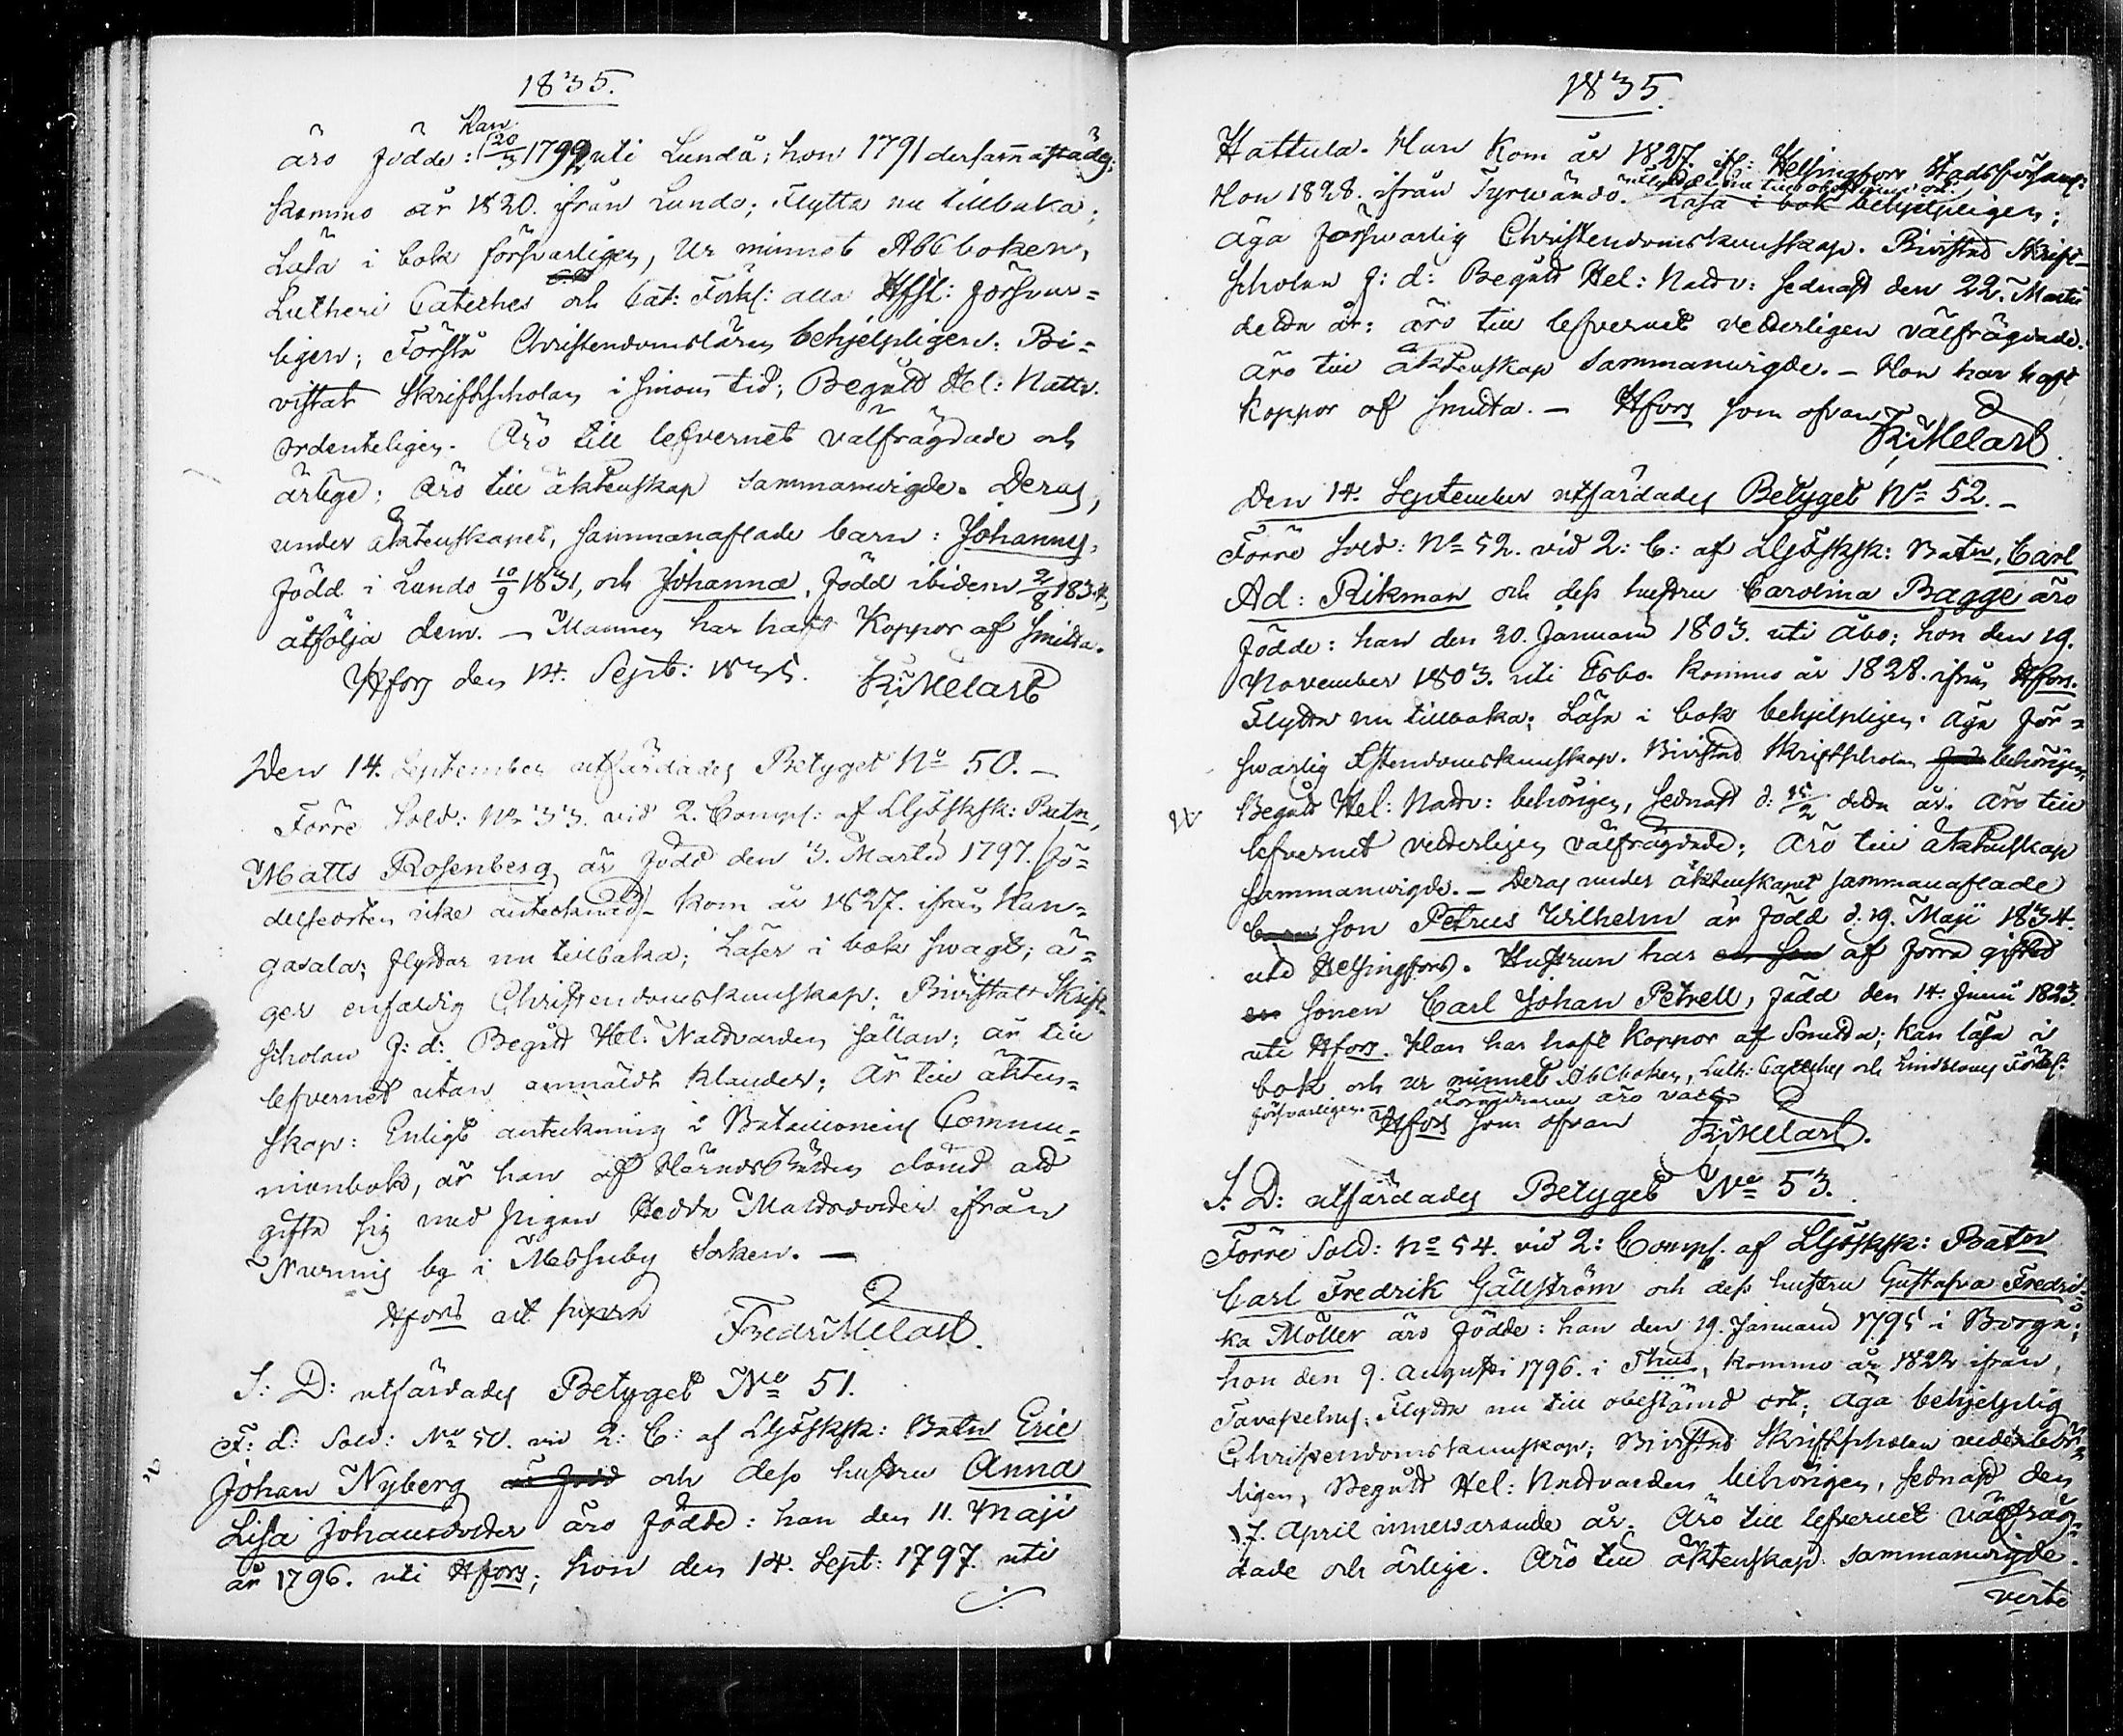 1835.
Han
äro födde: 20/3 1792 uti Lundå; hon 1791 dersammastädes.
Kommo år 1820. ifrån Lundo; Flytta nu tillbaka;
Läsa i bok försvarligen, Ur minnet Abcboken,
Lutheri Cateches och Cat: Förkl: alla Hfst: försvar=
ligen; Förstå Christendomsläran behjelpligen. Bi=
vistat Skriftscholan i sinom tid; Begått Hel: Nattv.
ordenteligen. Äro till lefvernet välfrägdade och
ärlige; Äro till äktenskap sammanvigde. Deras,
under äktenskapet, sammanaflade barn: Johannes,
född i Lundo 10/9 1831, och Johanna, född ibidem 2/8 1834,
åtfölja dem. — Mannen har haft Koppor af Smitta.
Hfors den 14. Sept: 1835. FrMelart
Den 14. September utfärdades Betyget No 50. —
Förre Sold: No 33. vid 2. Comp: af Lljfsksk: Batn,
Matts Rosenberg är född den 3. Martii 1797. Fö=
delseorten icke antecknad — kom år 1827. ifrån Kan=
gasala; flyttar nu tillbaka; Läser i bok svagt; ä=
ger enfaldig Christendomskunskap; Bivistatt Skrift
scholan f: d: Begått Hel: Nattvarden sällan; är till
lefvernet utan anmäldt klander; Är till äkten=
skap: Enligt anteckning i Bataillonens Commu=
nionbok, är han af HäradsRätten dömd att
gifta sig med pigan Hedda Mattsdotter ifrån
Nurmis by i Messuby Socken. —
Hfors ut supra FredrMelart.
S: D: utfärdades Betyget No 51.
F: d: Sold: No 50. vid 2: C: af Lljfsksk: Batn Eric
Johan Nyberg är född och dess hustru Anna
Lisa Johansdotter äro födde: han den 11. Maji
år 1796. uti Hfors; hon den 14. Sept: 1797. uti
1835.
Hattula. Han kom år 1827. if: Helsingfors Stadsförsaml:
Hon 1828. ifrån Tyrwändö. Flytta nu till obestämd ort.
Läsa i bok behjelpligen;
äga försvarlig Christendomskunskap. Bivistad Skrift-
scholan f: d: Begått Hel: Nattv: sednast den 22. Martii
detta år: äro till lefvernet vetterligen välfrägdade.
äro till äktenskap sammanvigde. — Hon har haft
koppor af smitta. — Hfors som ofvan
FrMelart.
Den 14. September utfärdades Betyget No 52. —
Förre Sold: No 52. vid 2: C: af Lljfsksk: Batn, Carl
Ad: Rikman och dess hustru Carolina Bagge äro
födde: han den 20. Januarii 1803. uti Åbo; hon den 19.
November 1803. uti Esbo. Kommo år 1828. ifrån Hfors.
Flytta nu tillbaka; Läsa i bok behjelpligen. Äga för=
svarlig Xstendomskunskap. Bivistad Skriftscholan behörigen,
Begått Hel: Nattv: behörigen, sednast d: 15/2 detta år. Äro till
lefvernet vetterligen välfrägdade; Äro till äktenskap
sammanvigde. — Deras under äktenskapet sammanaflade
barn son Petrus Wilhelm är född d. 19. Maji 1834.
uti Helsingfors. Hustrun har en son af förra giftet
en sonen Carl Johan Petrell, född den 14. Junii 1823.
uti Hfors. Han har haft koppor af Smitta; Kan läsa i
bok och ur minnet AbCboken, Luth: Cateches och Lindbloms Förkl:
försvarligen. — Föräldrarna äro vacc.
Hfors som ofvan FrMelart.
S. D: utfärdades Betyget No 53.
Förre Sold: No 54. vid 2: Comp. af Lljfsksk: Batn
Carl Fredrik Gällström och dess hustru Gustafva Fredri=
ka Möller äro födde: han den 19. Januarii 1795 i Borgå;
hon den 9. Augusti 1796. i Thus, kommo år 1822 ifrån
Tavastehus; Flytta nu till obestämd ort; Äga behjelplig
Christendomskunskap; Bivistad Skriftscholan vederbör=
ligen, Begått Hel: Nattvarden behörigen, sednast den
17. April innevarande år. Äro till lefvernet välfräg=
dade och ärlige. Äro till äktenskap sammanvigde.
verte